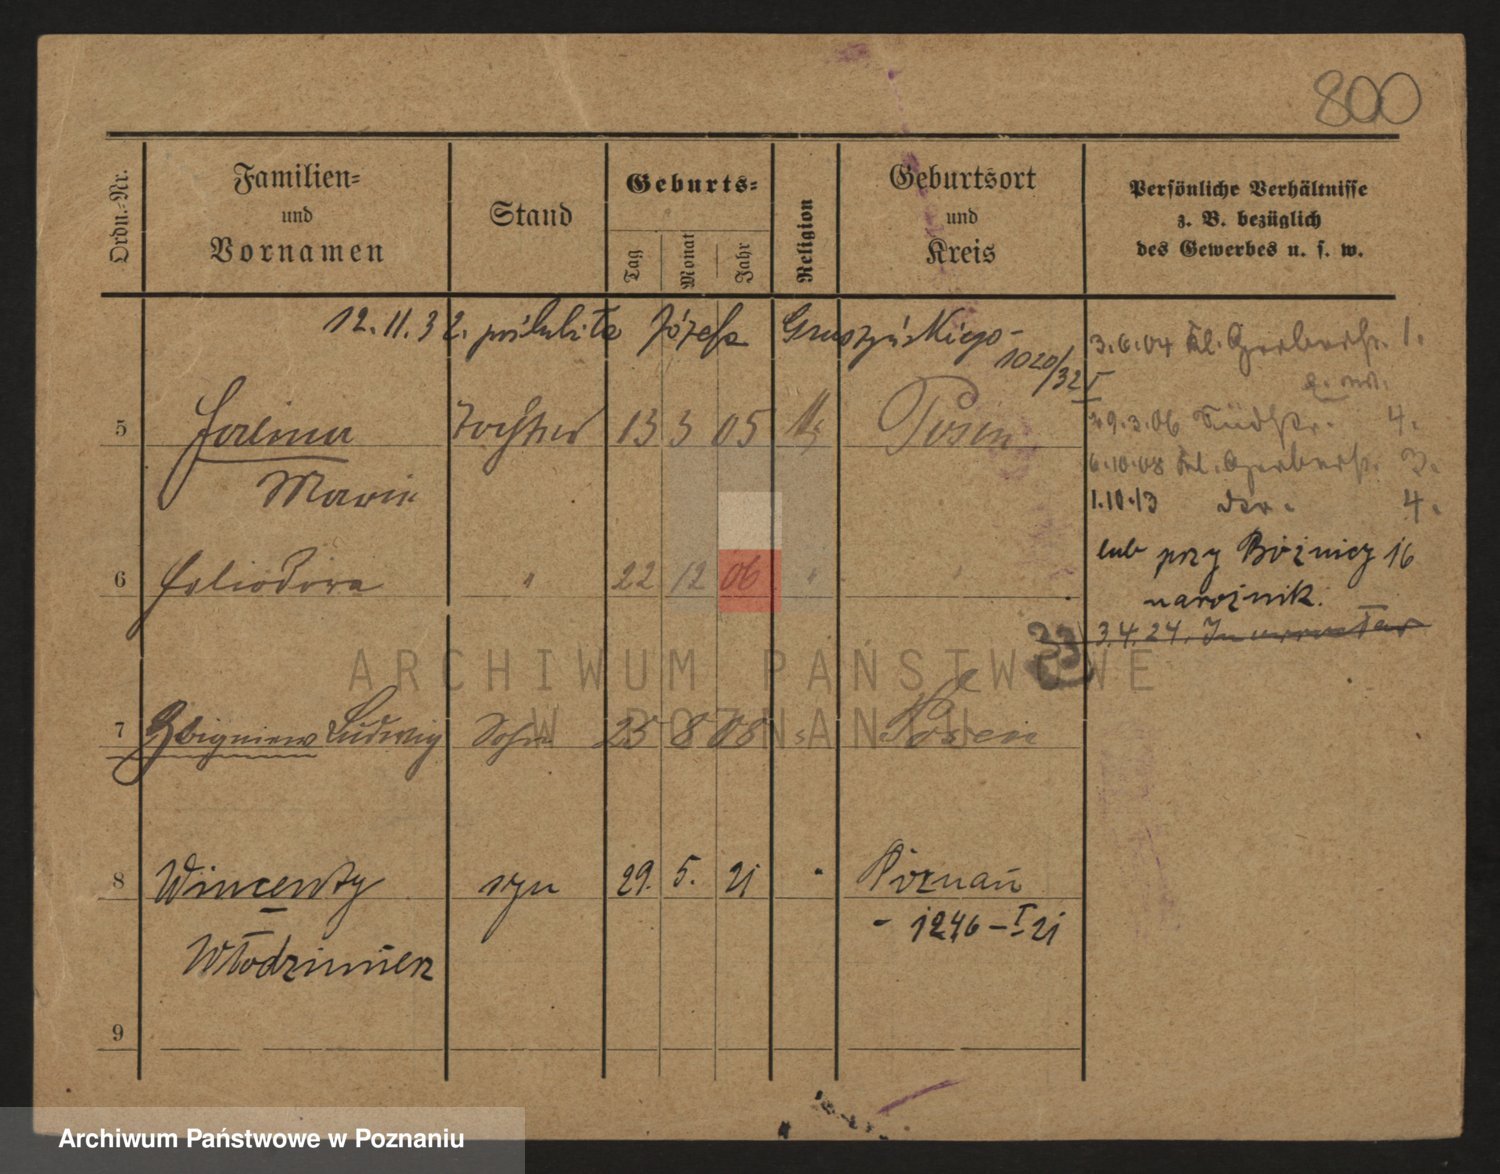 800
Ordn.-Nr.
Familien-
und
Vornamen
Stand
Geburts-
Tag
Monat
Jahr
Religion
Geburtsort
und
Kreis
Persönliche Verhältnisse
z. B. bezüglich
des Gewerbes u. s. w.
12.11.32. poślubiła Józefa
1020/32 I
3.6.04 Kl. Gerberstr. 1.
5 Halina Tochter 13 3 05 Posen
Marie
29.3.06 Südstr. 4.
6.10.08 Kl. Gerberstr. 3.
1.10.13 4.
6 Heliodora " 22 12 06 " "
lub przy Bożnicy 16
narożnik.
33 3.4.24.
7 Zbigniew Ludwig Sohn 25 8 08 Posen
8 Wincenty syn 29. 5. 21 " Poznań
- 1246 - I 21
Włodzimierz
9
ARCHIWUM PAŃSTWOWE
W POZNANIU
Archiwum Państwowe w Poznaniu